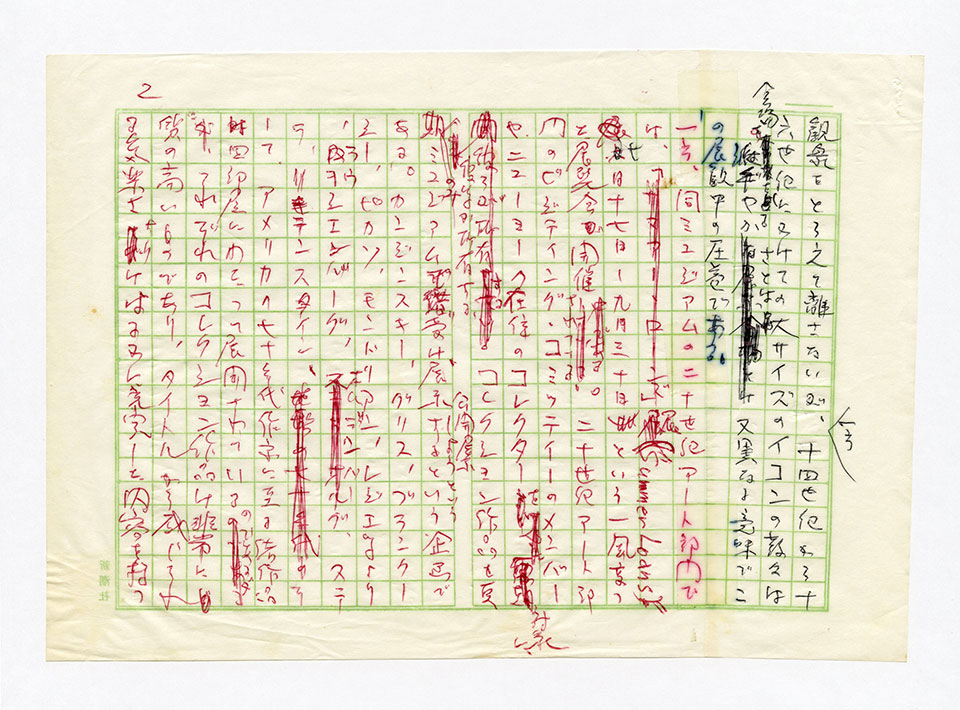 2
観衆をとらえて離さないが、十四世紀から十
六世紀にかけての大サイズのイコンの数々は
会場の華やかさとは又異なる意味でこ
の展覧中の圧巻である。
一方、同ミュージアムの二十世紀アート部内で
は、「サマー・ローンズ」展 Summer Loans
七月十七日〜九月三十日迄という一風変つ
た展覧会が開催されている。二十世紀アート部
内のビジティング・コミッティーのメンバー
や、ニューヨーク在住のコレクター
コレクション作品を夏
期のみミュージアムが受け展示するという企画で
ある。カンジンスキー、グリス、ブランクー
シー、ピカソ、モンドリアン、レジェより
ラウシェンバーグ、ステ
ラ、リキテンスタイン、
して、アメリカの七十年代作家に至る諸作品
は四部屋にわたって展開されている。
それぞれのコレクション作品は非常に
質の高いものであり、タイトルから感じられ
る気楽さ はるかに充実した内容を持つ
新潮社